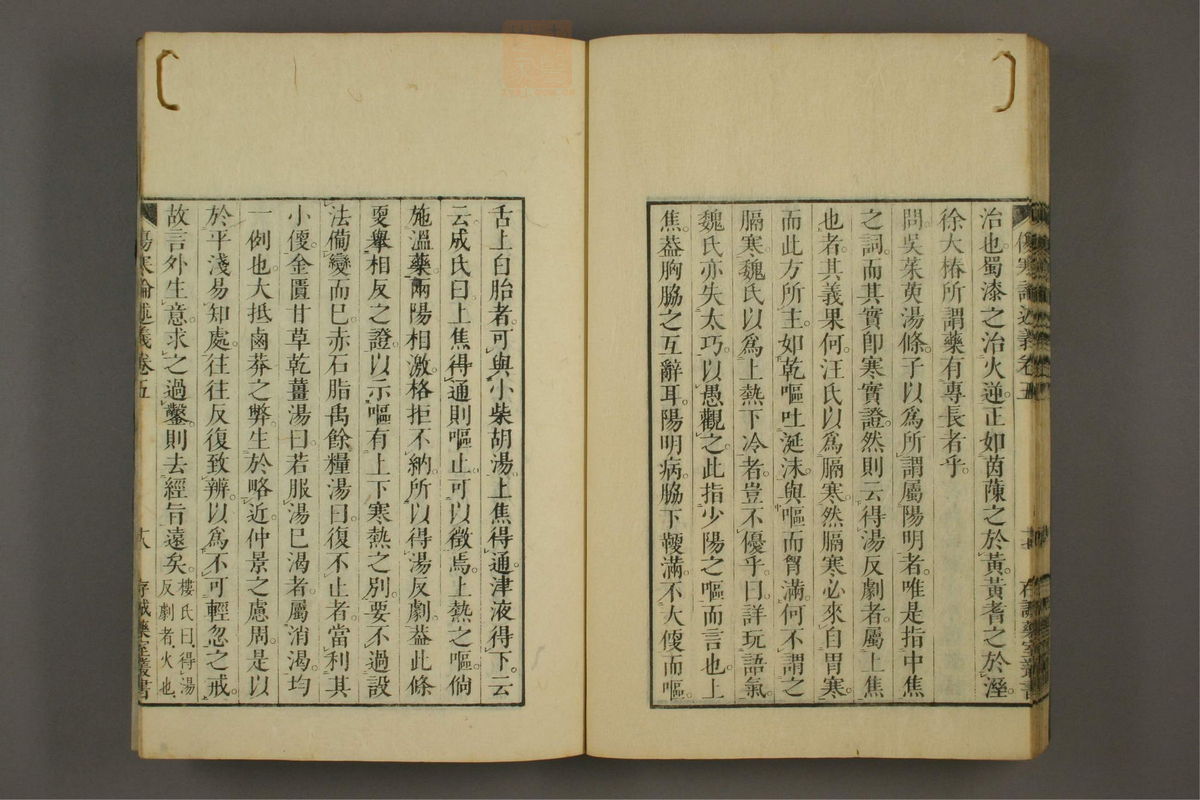 治也。蜀漆之治火逆。正如茵蔯之於黃。黃耆之於溼。
徐大椿所謂藥有專長者乎。
問吳茱萸湯條。子以爲所謂屬陽明者。唯是指中焦
之詞。而其實卽寒實證。然則云得湯反劇者。屬上焦
也者。其義果何。汪氏以爲膈寒。然膈寒必來自胃寒。
而此方所主。如乾嘔吐涎沫。與嘔而胷滿。何不謂之
膈寒。魏氏以爲上熱下冷者。豈不優乎。曰。詳玩語氣。
魏氏亦失太巧。以愚觀之。此指少陽之嘔而言也。上
焦葢胸脇之互辭耳。陽明病。脇下鞕滿。不大傻而嘔。
傷寒論述義卷五
十七
存誠藥室叢書
舌上白胎者。可與小柴胡湯。上焦得通。津液得下。云
云。成氏曰。上焦得通則嘔止。可以徵焉。上熱之嘔。倘
施溫藥。兩陽相激。格拒不納。所以得湯反劇。葢此條
更舉相反之證。以示嘔有上下寒熱之別。要不過設
法備變而已。赤石脂禹餘糧湯曰。復不止者。當利其
小傻。金匱甘草乾薑湯曰。若服湯已渴者。屬消渴。均
一例也。大抵鹵莽之弊。生於略近。仲景之慮周。是以
於平淺易知處。往往反復致辨。以爲不可輕忽之戒。
故言外生意。求之過鑿。則去經旨遠矣。樓氏曰。得湯
反劇者。火也。
傷寒論述義卷五
十八
存誠藥室叢書